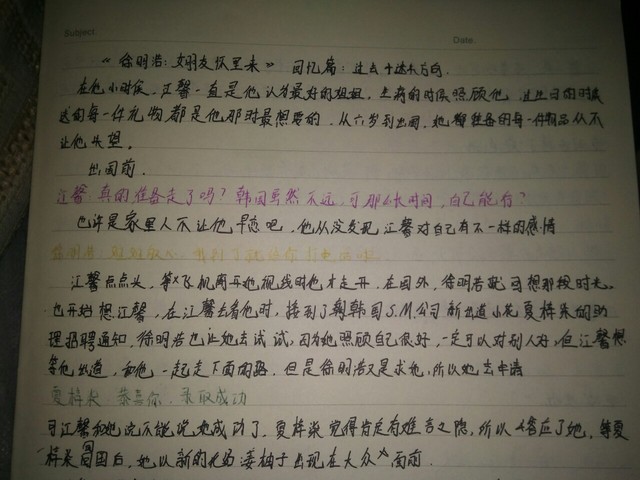 Subject:
Date:
《徐明浩:女朋友怀里来》 回忆篇:过去十达未方向.
在他小时候,江馨一直是他认为最好的姐姐,生病的时候照顾他,过生日的时候
送的每一件礼物都是他那时最想要的,从六岁到出国,她都准备的每一件物品从不
让他失望。
出国前.
江馨:真的准备走了吗?韩国虽然不远,可那么长时间,自己能行?
也许是家里人不让他早恋吧,他从没发现江馨对自己有不一样的感情
江馨点点头,等飞机离开她视线时他才走开.在国外,徐明浩就司想那段时光,
也开始想江馨,在江馨去看他时,接到了韩国S.M.公司新出道小花夏梓柒的助
理招聘通知,徐明浩也让她去试试,因为她照顾自己很好,一定可以对别人好,但江馨想
等他出道,和他一起走下面的路.但是徐明浩又是求她,所以她去申请
夏梓柒:恭喜你,录取成功
可江馨和她说不能说她成功了.夏梓柒觉得肯定有难言之隐,所以答应了她,等夏
梓柒回国后,她以新的化名凄柚于出现在大众面前.